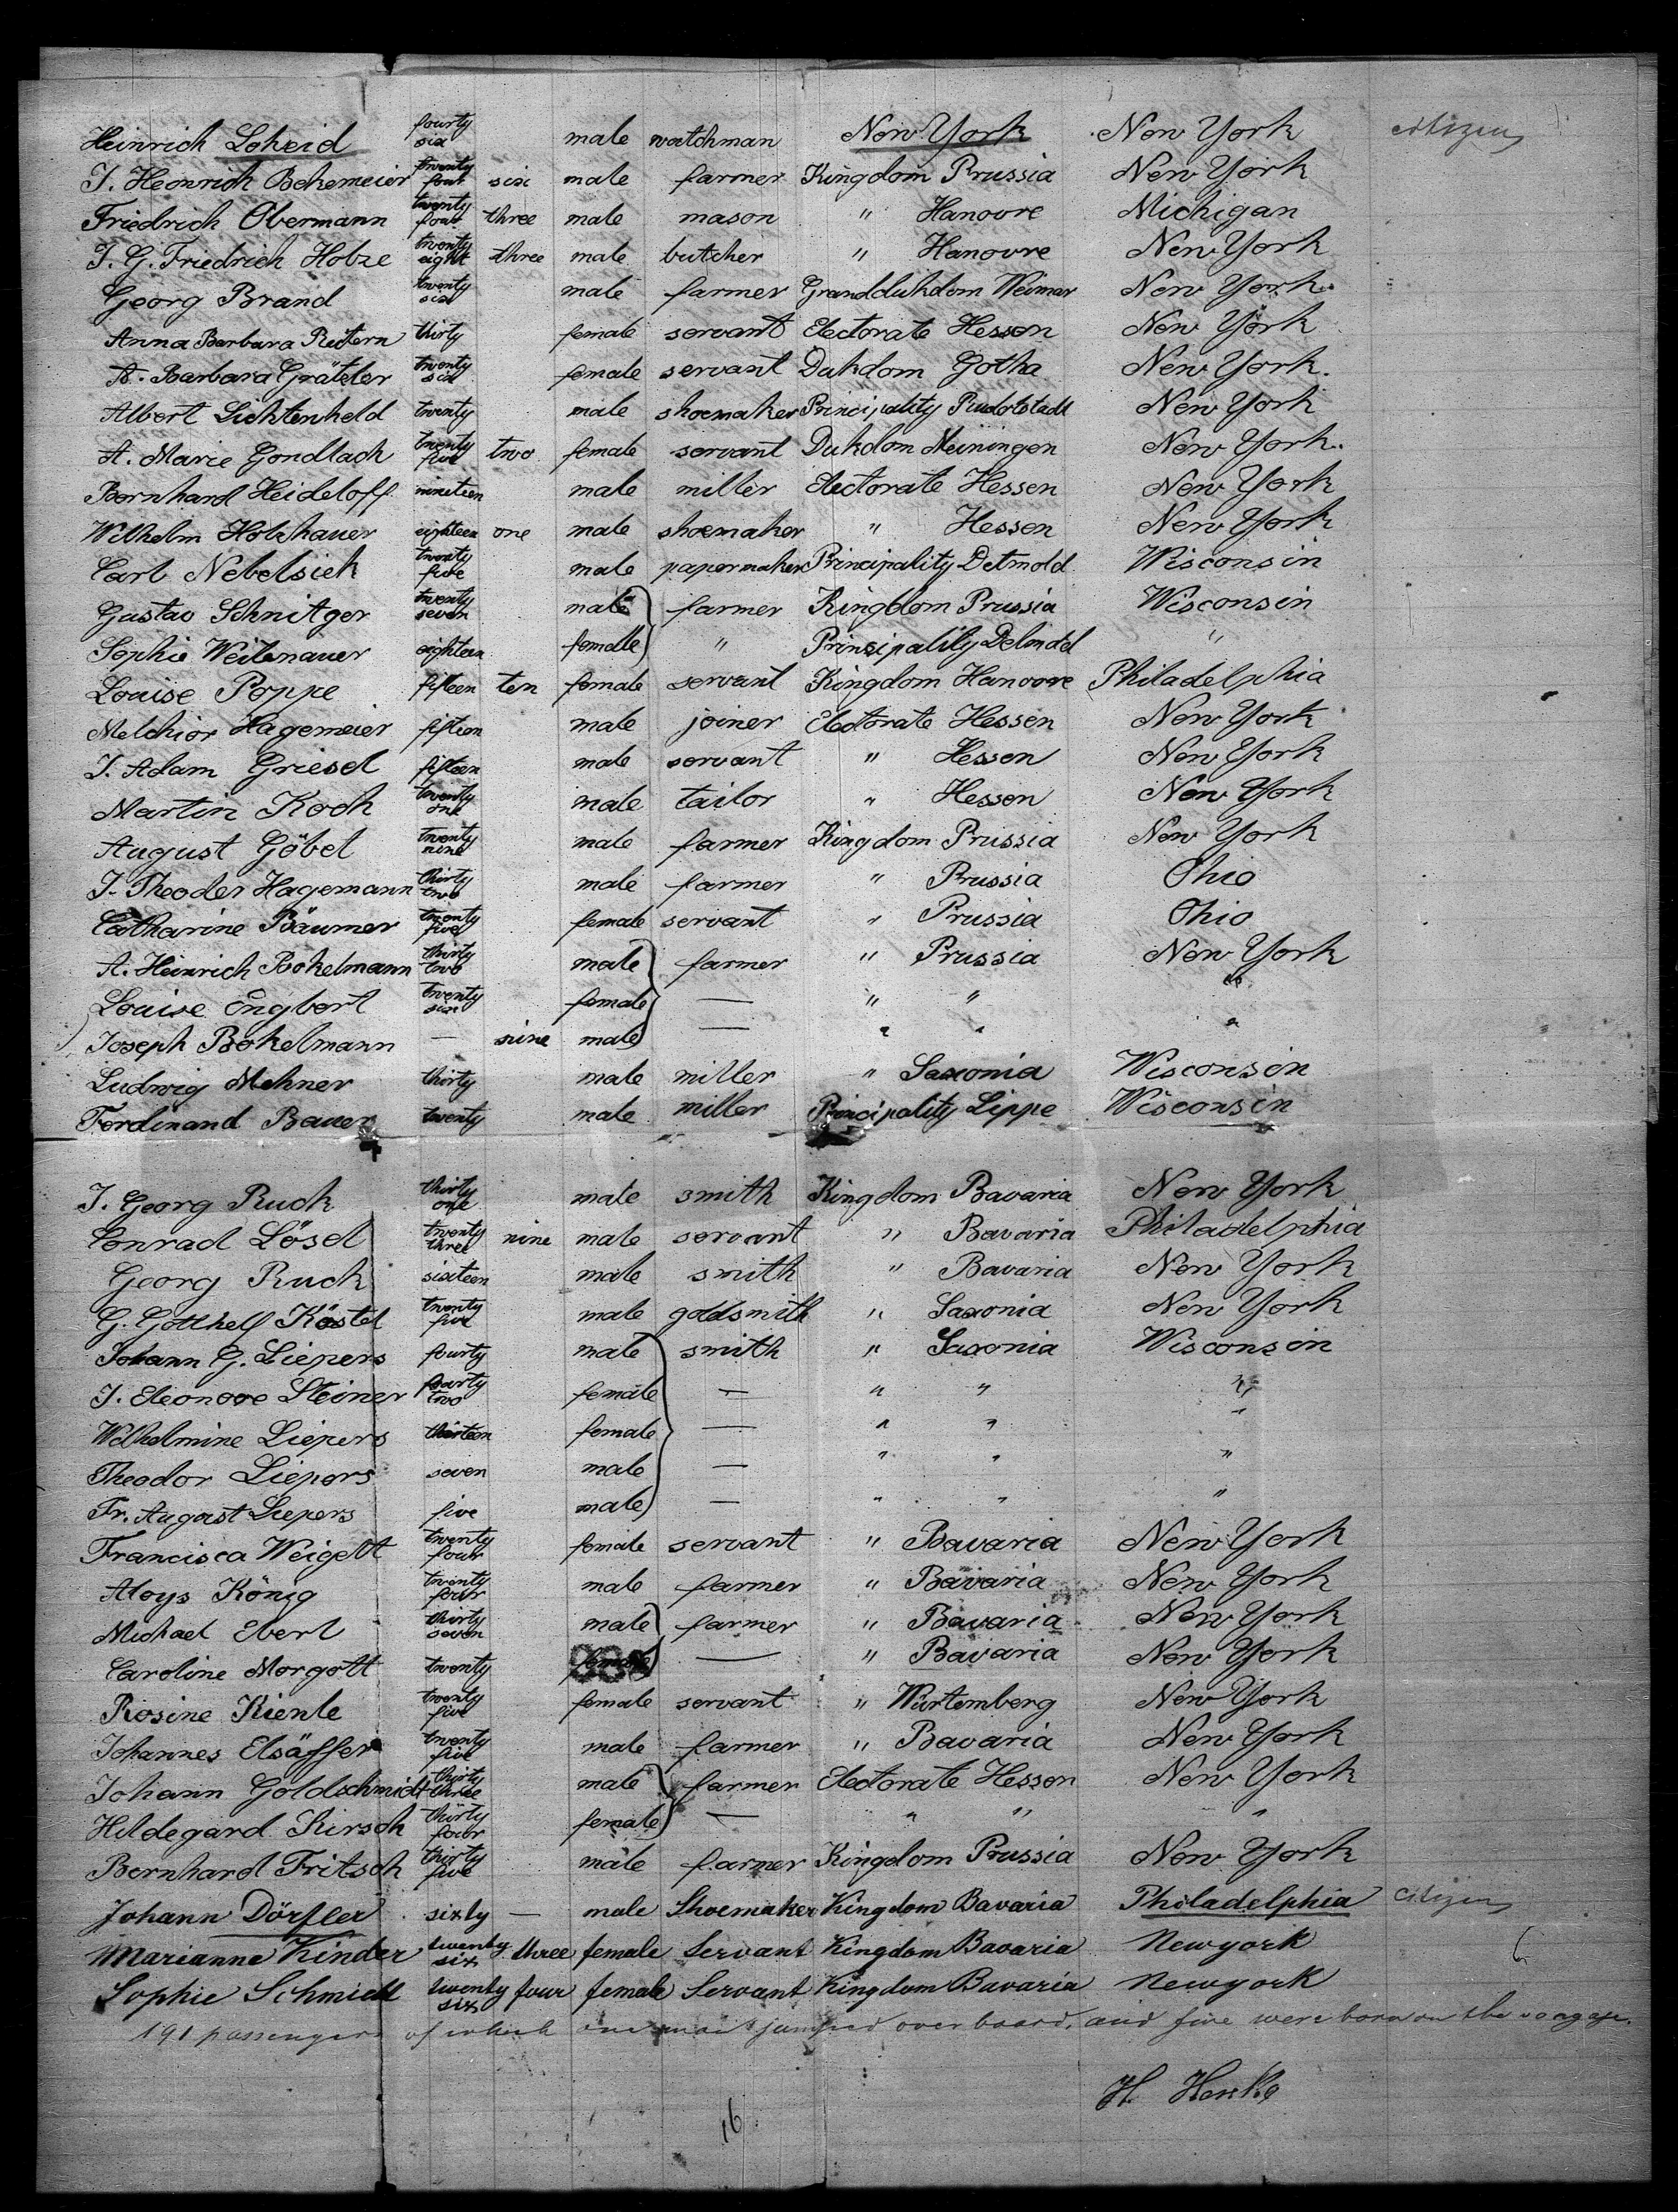 Heinrich Loheid fourty six male watchman New York New York citizen
J. Heinrich Bekemeier twenty four six male farmer Kingdom Prussia New York
Friedrich Obermann twenty four three male mason " Hanovre Michigan
J. G. Friedrich Hobze twenty eight three male butcher " Hanovre New York
Georg Brand twenty six male farmer Granddukdom Weimar New York
Anna Barbara Reitern thirty female servant Electorate Hessen New York
A. Barbara Grätzler twenty six female servant Dukdom Gotha New York.
Albert Lichtenheld twenty male shoemaker Principality Rudolstadt New York
A. Marie Gondlach twenty five two female servant Dukdom Meiningen New York.
Bernhard Heideloff nineteen male miller Electorate Hessen New York
Wilhelm Holzhauer eighteen one male shoemaker " Hessen New York
Carl Nebelsiek twenty five male papermaker Principality Detmold Wisconsin
Gustav Schnitger twenty seven male farmer Kingdom Prussia Wisconsin
Sophie Weitenauer eighteen female " Principality Detmold "
Louise Poppe fifteen ten female servant Kingdom Hanovre Philadelphia
Melchior Hagemeier fifteen male joiner Electorate Hessen New York
J. Adam Griesel fifteen male servant " Hessen New York
Martin Koch twenty one male tailor " Hessen New York
August Göbel twenty nine male farmer Kingdom Prussia New York
J. Theoder Hagemann thirty two male farmer " Prussia Ohio
Catharine Bäumer twenty five female servant " Prussia Ohio
A. Heinrich Bokelmann thirty two male farmer " Prussia New York
Louise Engbert twenty six female — " " "
Joseph Bokelmann — nine male — " " "
Ludwig Mehner thirty male miller " Saxonia Wisconsin
Ferdinand Bauer twenty male miller Principality Lippe Wisconsin
J. Georg Ruck thirty one male smith Kingdom Bavaria New York
Conrad Lösel twenty three nine male servant " Bavaria Philadelphia
Georg Ruck sixteen male smith " Bavaria New York
G. Gotthelf Köstel twenty five male goldsmith " Saxonia New York
Johann G. Liepers fourty male smith " Saxonia Wisconsin
J. Eleonore Steiner fourty two female — " " "
Wilhelmine Liepers thirteen female — " " "
Theodor Liepers seven male — " " "
Fr. August Liepers five male — " " "
Francisca Weigelt twenty four female servant " Bavaria New York
Aloys König twenty four male farmer " Bavaria New York
Michael Ebert thirty seven male farmer " Bavaria New York
Caroline Morgott twenty female — " Bavaria New York
Rosine Kienle twenty five female servant " Würtemberg New York
Johannes Elsässer twenty five male farmer " Bavaria New York
Johann Goldschmidt thirty three male farmer Electorate Hessen New York
Hildegard Kirsch thirty four female — " " "
Bernhard Fritsch thirty five male farmer Kingdom Prussia New York
Johann Dörfler sixty — male Shoemaker Kingdom Bavaria Philadelphia Citizen
Marianne Kinder twenty six three female Servant Kingdom Bavaria Newyork
Sophie Schmidt twenty six four female Servant Kingdom Bavaria Newyork
191 passengers of which one man jumped over board. and five were born on the voyage.
H. Henke
16